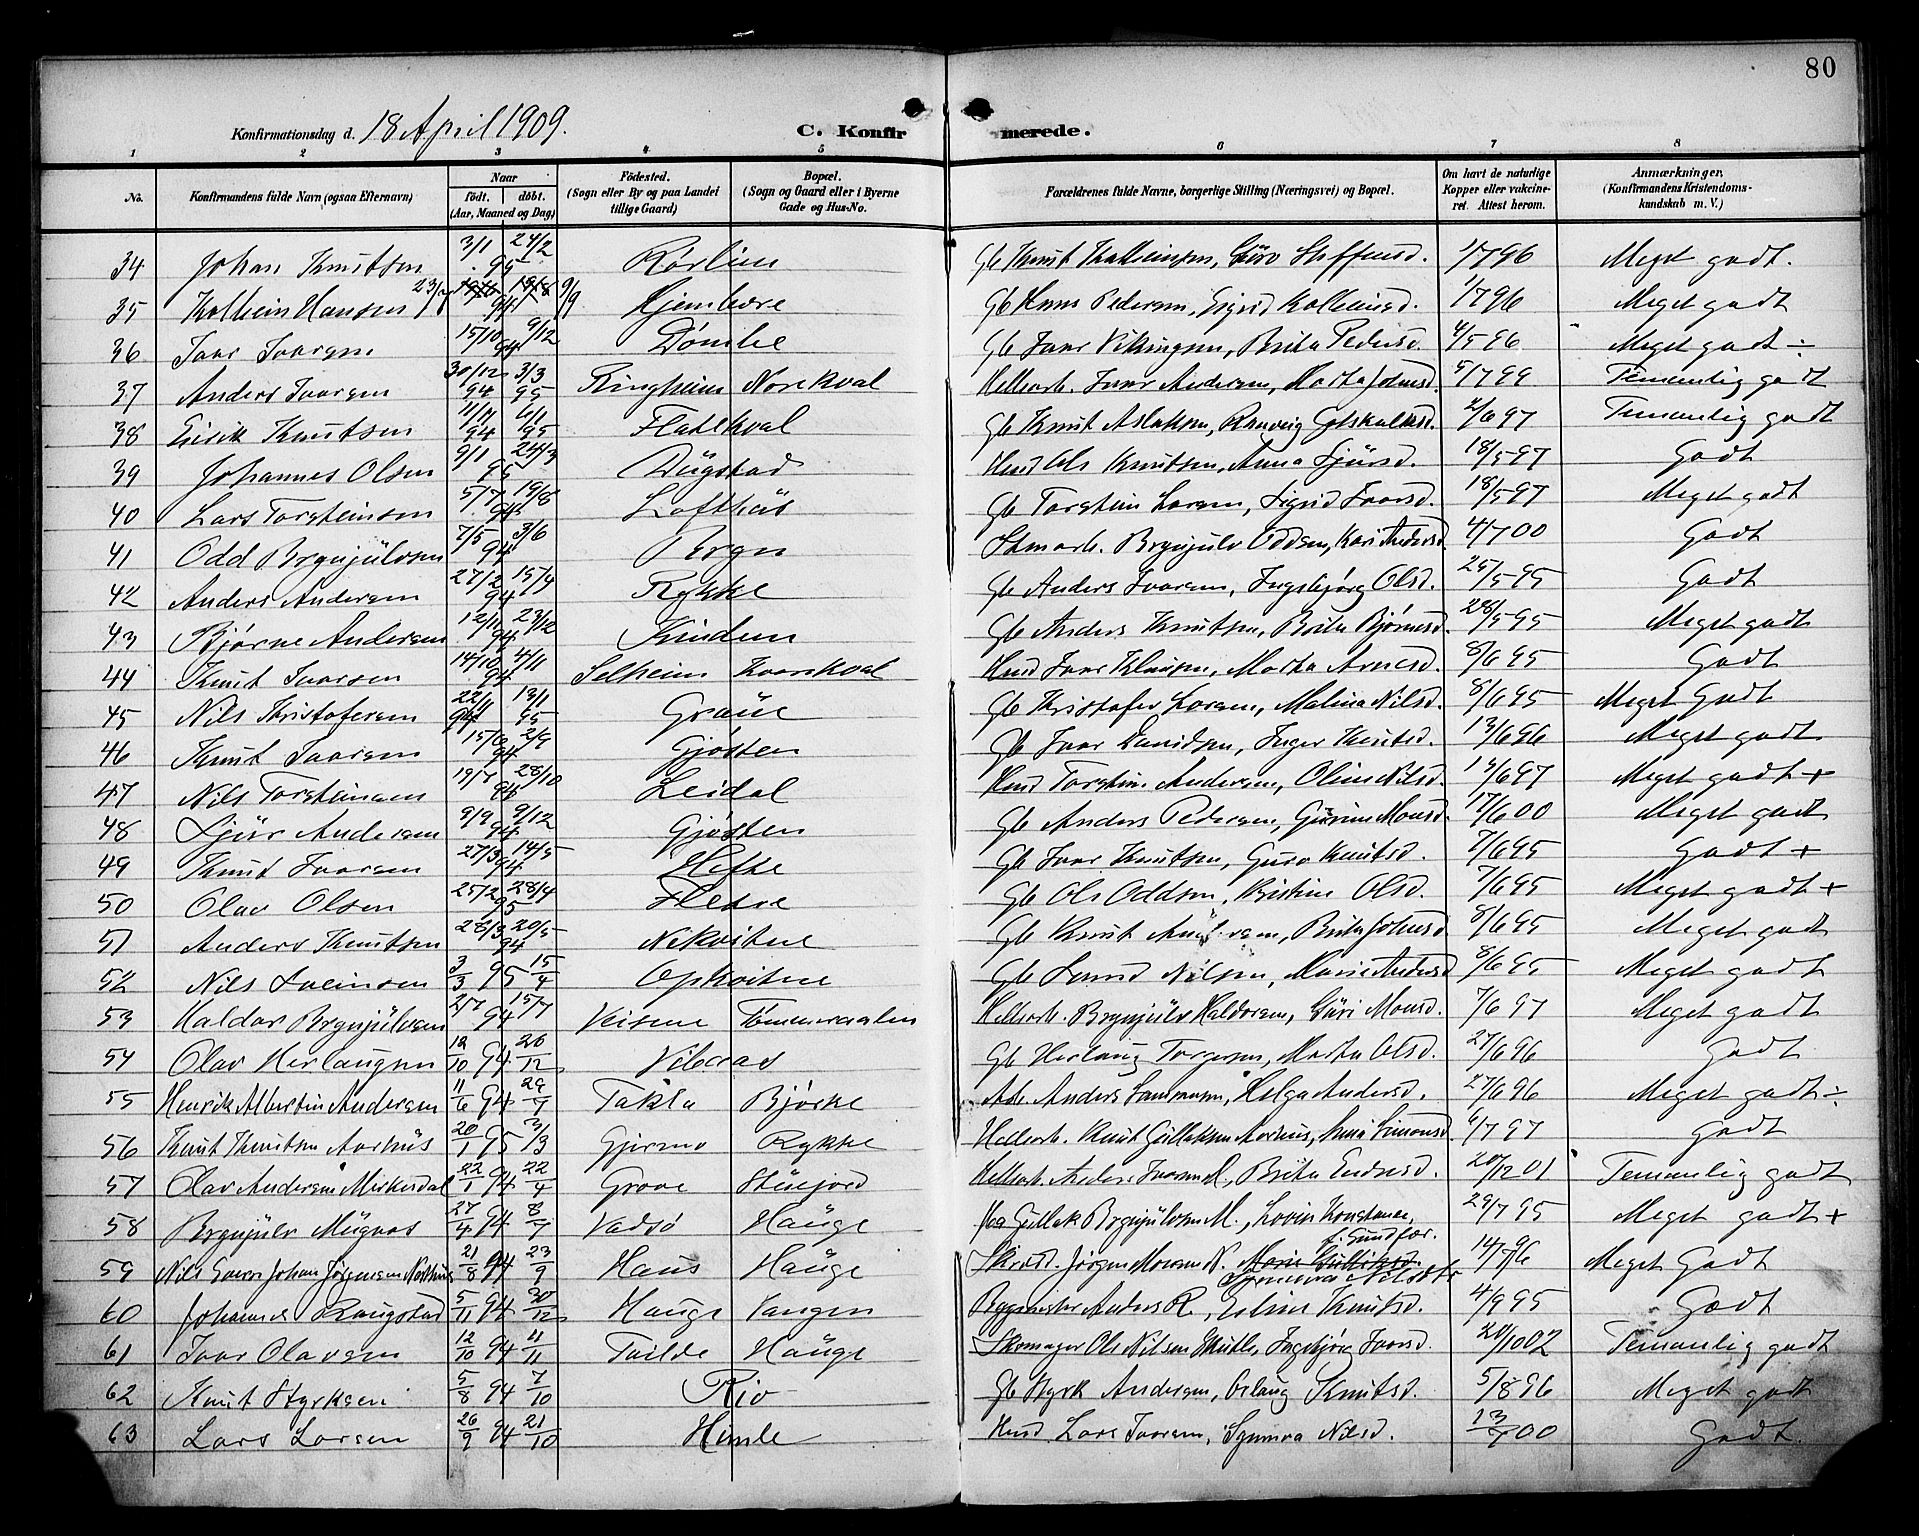 80
Konfirmationsdag d. 18 April 1909. C. Konfirmerede.
1 2 3 4 5 6 7 8
No. Konfirmandens fulde Navn (ogsaa Efternavn) Naar født. døbt. (Aar, Maaned og Dag) Fødested. (Sogn eller By og paa Landet tillige Gaard) Bopæl. (Sogn og Gaard eller i Byerne Gade og Hus-No. Forældrenes fulde Navne, borgerlige Stilling (Næringsvei) og Bopæl. Om havt de naturlige Kopper eller vakcineret. Attest herom. Anmærkninger, (Konfirmandens Kristendomskundskab m. V.)
34 Johan Knutsen 3/1 24/2 95 Rørlien Gb Knut Kolbeinsen, Guro Steffensd. 1/7 96 Meget godt.
35 Kolbein Hansen 23/7 94 9/9 Hjembore Gb Hans Pedersen, Sigrid Kolbeinsd. 1/7 96 Meget godt
36 Ivar Ivarsen 15/10 9/12 94 Dømbe Gb Ivar Vikingsen, Brita Pedersd. 4/5 96 Meget godt ÷
37 Anders Ivarsen 30/12 94 3/3 95 Ringheim Norekval Ivar Andersen, Marta Johnsd. 5/7 99 Temmelig godt
38 Eirik Knutsen 11/11 94 6/1 95 Flatekval Gb Knut Aslaksen, Ranveig Gotskalksd. 2/6 97 Temmelig godt
39 Johannes Olsen 9/1 24/3 95 Dugstad Husd Ole Knutsen, Anna Sjursd. 18/5 97 Godt
40 Lars Torsteinsen 5/7 19/8 94 Lofthus Gb Torstein Larsen, Sigrid Ivarsd. 18/5 97 Meget godt
41 Odd Brynjulvsen 7/5 3/6 94 Bergn Brynjulv Oddsen, Kari Andersd. 4/7 00 Godt
42 Anders Andersen 27/2 15/4 94 Rykke Gb Anders Ivarsen, Ingebjørg Olsd. 25/5 95 Godt
43 Bjørne Andersen 12/11 23/12 94 Kinden Gb Anders Knutsen, Brita Bjørnsd. 28/5 95 Meget godt
44 Knut Ivarsen 14/10 4/11 94 Selheim Kvarekval Husd Ivar Klausen, Marta Arnesd. 8/6 95 Godt
45 Nils Kristofersen 22/11 94 13/1 95 Graue Gb Kristofer Larsen, Malina Nilsd. 8/6 95 Meget Godt
46 Knut Ivarsen 15/6 2/9 94 Gjøsten Gb Ivar Davidsen, Inger Knutsd. 13/6 96 Meget godt
47 Nils Torsteinsen 19/7 28/10 94 Leidal Husd Torstein Andersen, Oline Nilsd. 12/6 97 Meget godt +
48 Sjur Andersen 9/9 9/12 94 Gjøsten Gb Anders Pedersen, Gurine Monsd. 12/6 00 Meget godt
49 Knut Ivarsen 27/3 14/5 94 Hefte Gb Ivar Knutsen, Guro Knutsd. 7/6 95 Godt +
50 Olav Olsen 25/2 28/4 95 Fletre Gb Ole Oddsen, Kristine Olsd. 7/6 95 Meget godt +
51 Anders Knutsen 28/3 20/5 94 Nekvitne Gb Knut Andersen, Brita Johnsd 8/6 95 Meget godt
52 Nils Sveinsen 3/3 95 15/4 Opkvitne Gb Nilsen, Marie Andersd 8/6 95 Meget godt
53 Haldor Brynjulvsen 2/7 15/7 94 Veisene Tømmervaalen Brynjulv Haldorsen, Guri Monsd. 7/6 97 Meget godt
54 Olav Herlaugsen 12/10 94 26/12 Viberas Gb Herlaug Torgersen, Marta Olsd. 27/6 96 Godt
55 Henrik Albertin Andersen 11/6 94 29/7 Takla Bjørke Anders Samsonsen, Helga Andersd. 27/6 96 Meget godt ÷
56 Knut Knutsen Aarhus 20/1 95 3/3 Gjerme Rykke Knut Gullaksen Aarhus, Anna Simonsd 6/7 97 Godt
57 Olav Andersen Mirkesdal 22/1 94 22/4 Grove Skuejord Anders Ivarsen M, Brita Endresd. 20/12 01 Temmelig godt
58 Brynjulv Mugnas 27/4 94 8/7 Vadsø Hauge Gullak Brynjulvsen M., Lovin Konstance, f. Sundfør. 29/7 95 Meget godt +
59 Nils Sever Johan Jørgensen Nesthus 21/8 94 23/9 Haus Hauge Jørgen Monsen N. Synneva Nilsdtr 14/7 96 Meget Godt
60 Johannes Raugstad 5/11 94 30/12 Hauge Vangen Bygmester Anders R., Eline Knutsd. 4/9 95 Godt
61 Ivar Olavsen 12/10 94 11/11 Tvilde Hauge Skomager Ole Nilsen Skutle, Ingebjørg Ivarsd. 20/10 02 Temmelig godt
62 Knut Styrksen 5/8 94 7/10 Rio Gb Styrk Andersen, Aslaug Knutsd. 5/8 96 Meget godt
63 Lars Larsen 26/9 94 21/10 Himle Husd. Lars Ivarsen, Synneva Nilsd. 13/7 00 Godt.